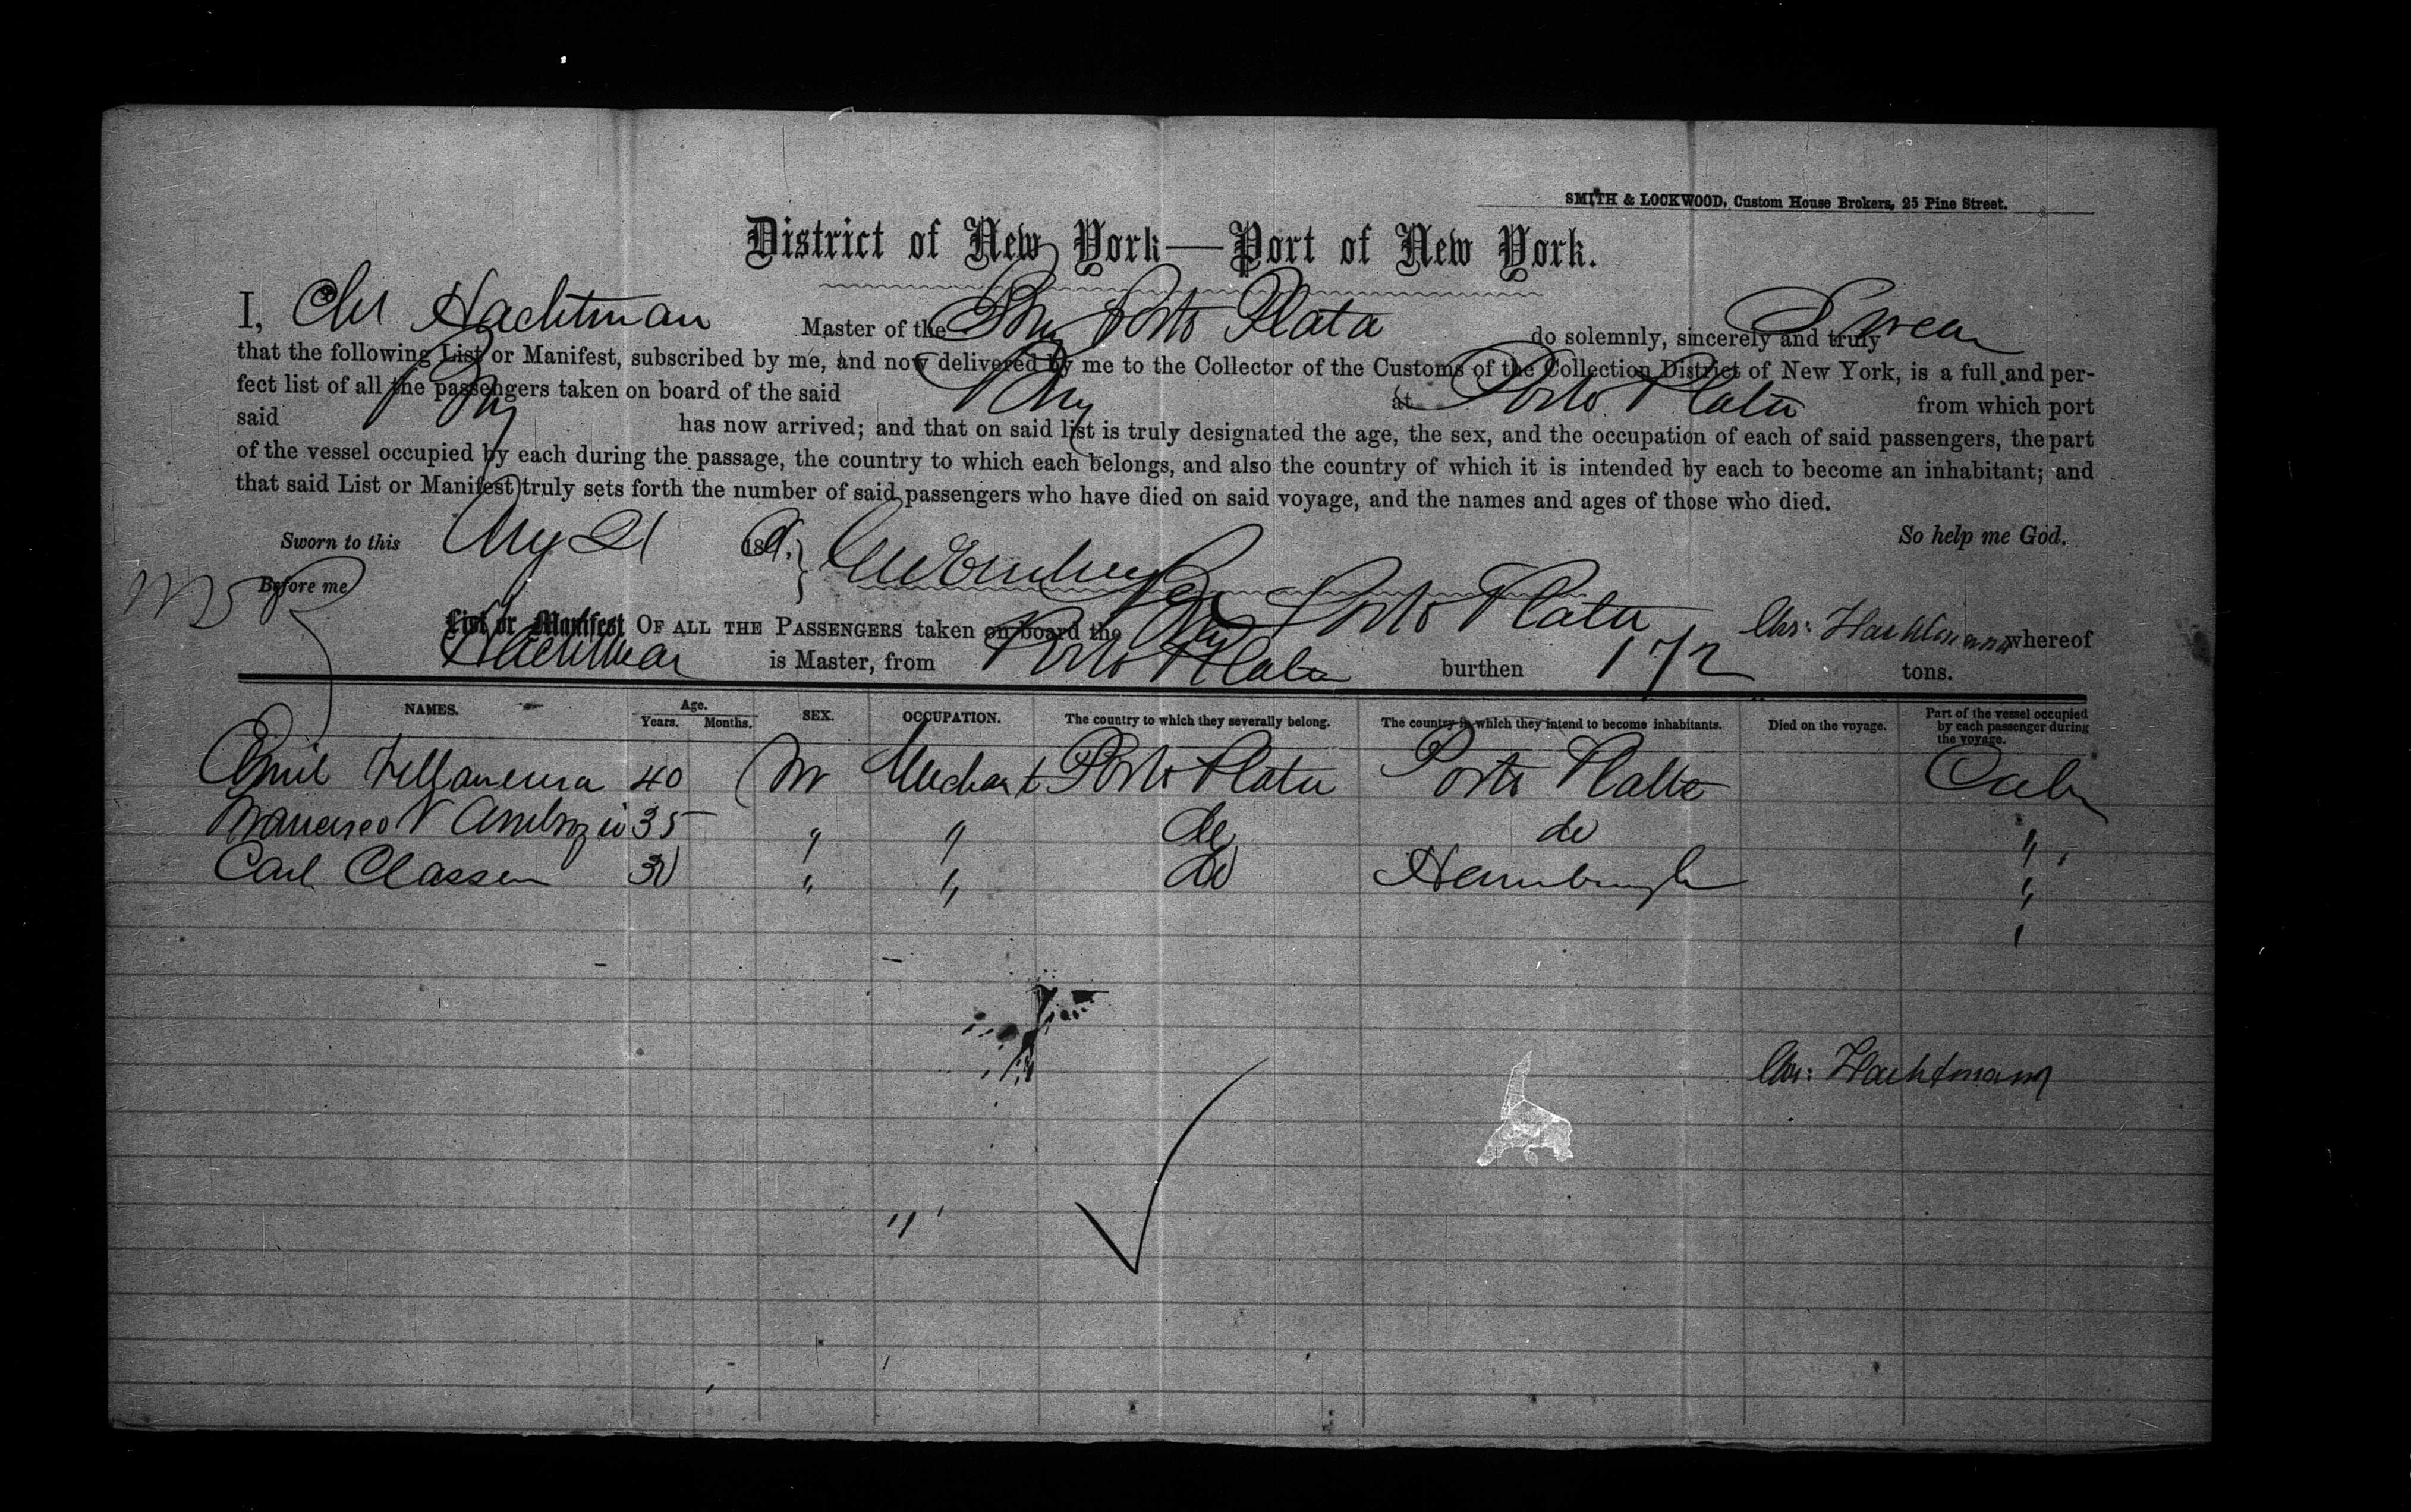 SMITH & LOCKWOOD, Custom House Brokers, 25 Pine Street.
District of New York—Port of New York.
I, Chr Hachtman Master of the Brig Porto Plata do solemnly, sincerely and truly Swear
that the following List or Manifest, subscribed by me, and now delivered by me to the Collector of the Customs of the Collection District of New York, is a full and per-
fect list of all the passengers taken on board of the said Brig at Porto Plata from which port
said Brig has now arrived; and that on said list is truly designated the age, the sex, and the occupation of each of said passengers, the part
of the vessel occupied by each during the passage, the country to which each belongs, and also the country of which it is intended by each to become an inhabitant; and
that said List or Manifest truly sets forth the number of said passengers who have died on said voyage, and the names and ages of those who died.
Sworn to this 21 18 So help me God.
Before me
Chr: Hachtmann
List or Manifest OF ALL THE PASSENGERS taken on board the Brig Porto Plata whereof
Hachtman is Master, from Porto Plata burthen 172 tons.
NAMES. Age. Years. Months. SEX. OCCUPATION. The country to which they severally belong. The country in which they intend to become inhabitants. Died on the voyage. Part of the vessel occupied by each passenger during the voyage.
40 M Merchant Porto Plata Porto Platte Cabin
Francisco V Ambrozio 35 " " do do "
Carl Classen " " do Hamburgh "
Chr: Hachtmann